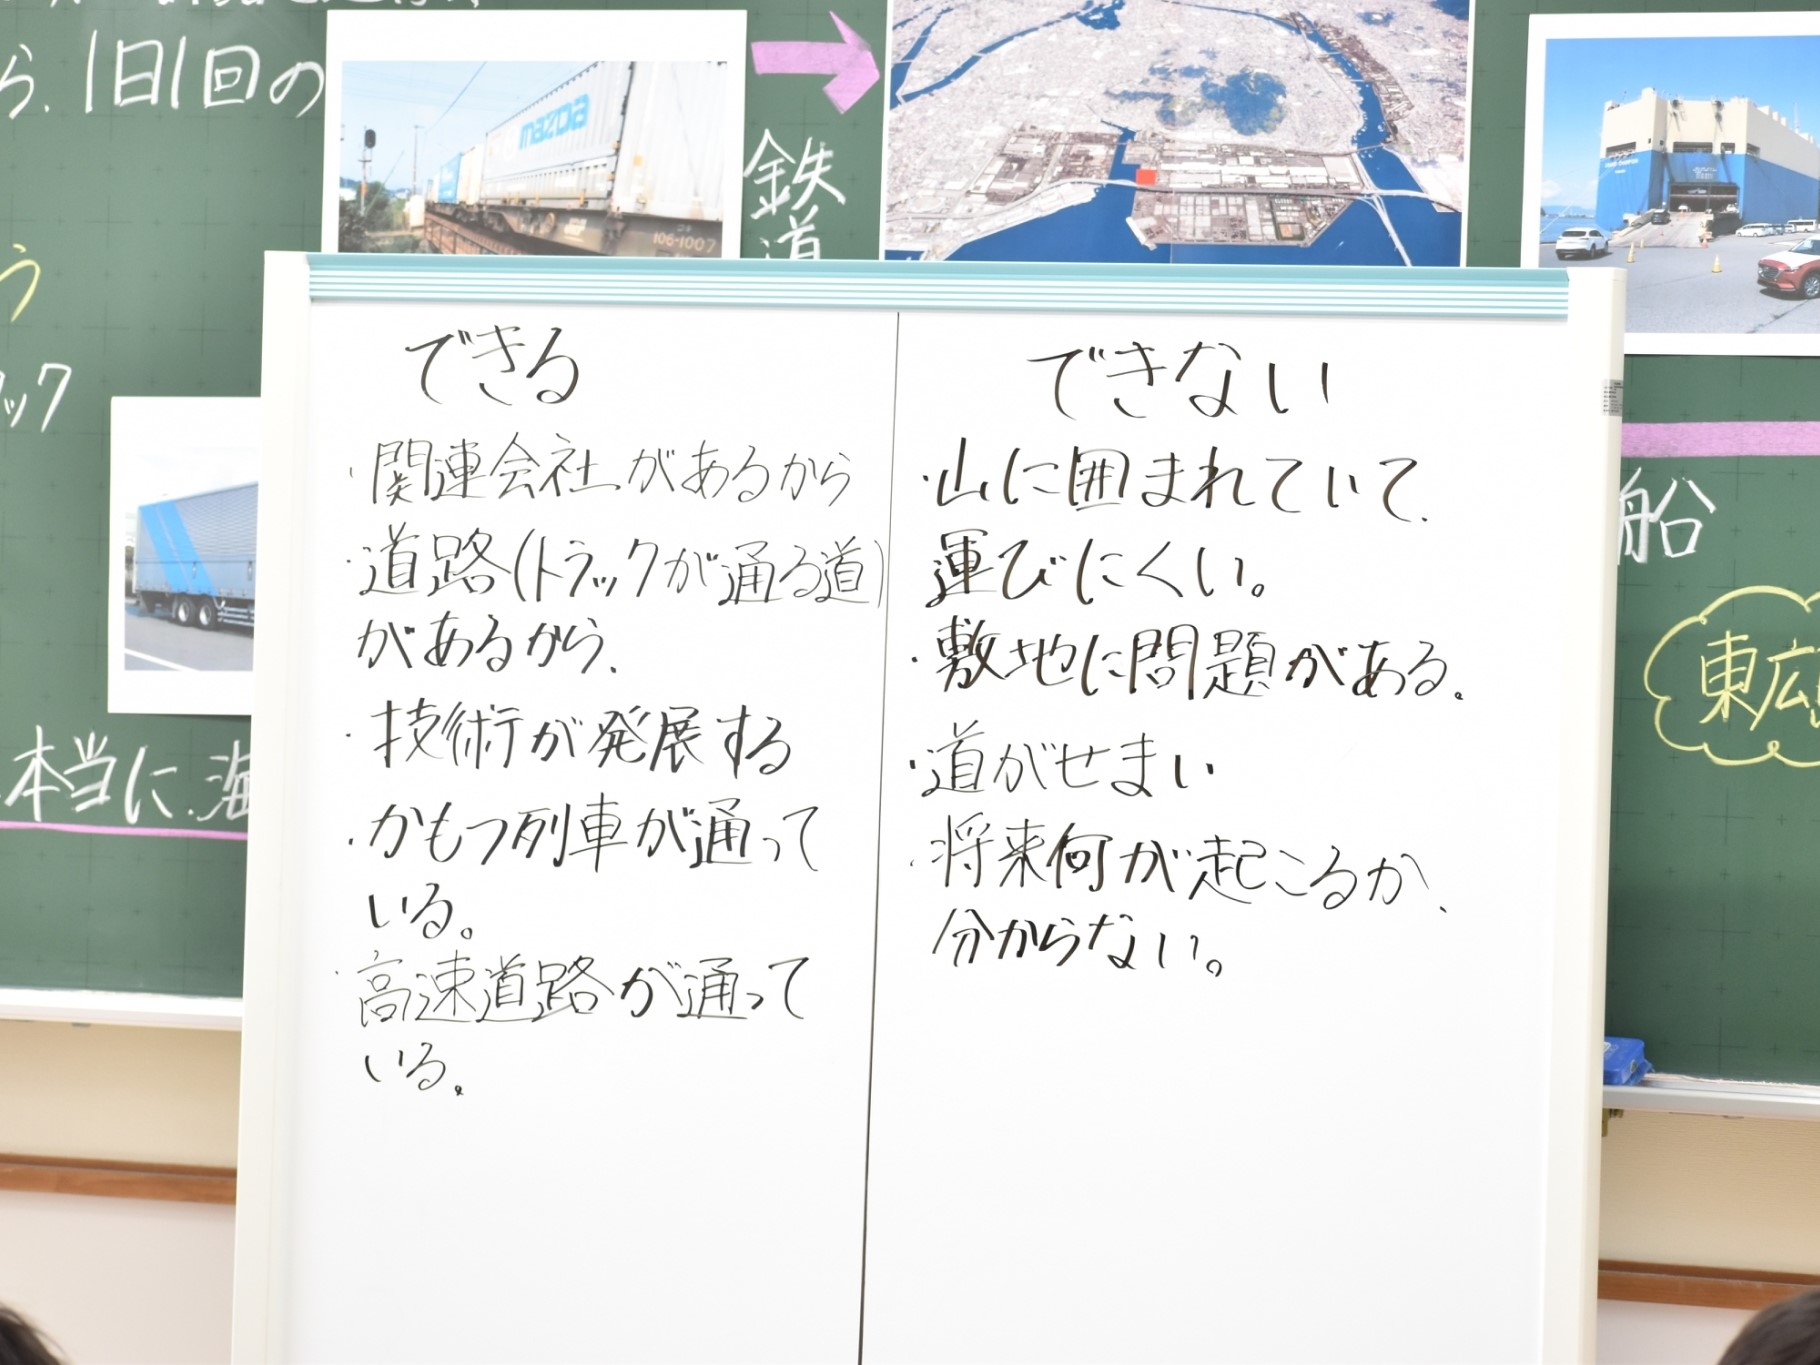 ら、1日1回の
mazda
106-1007
鉄
道
ック
できる
・関連会社があるから
・道路(トラックが通る道)
があるから、
・技術が発展する
・かもつ列車が通って
いる。
・高速道路が通って
いる。
できない
・山に囲まれていて、
運びにくい。
・敷地に問題がある。
・道がせまい
・将来何が起こるか、
分からない。
本当に、海
船
東広